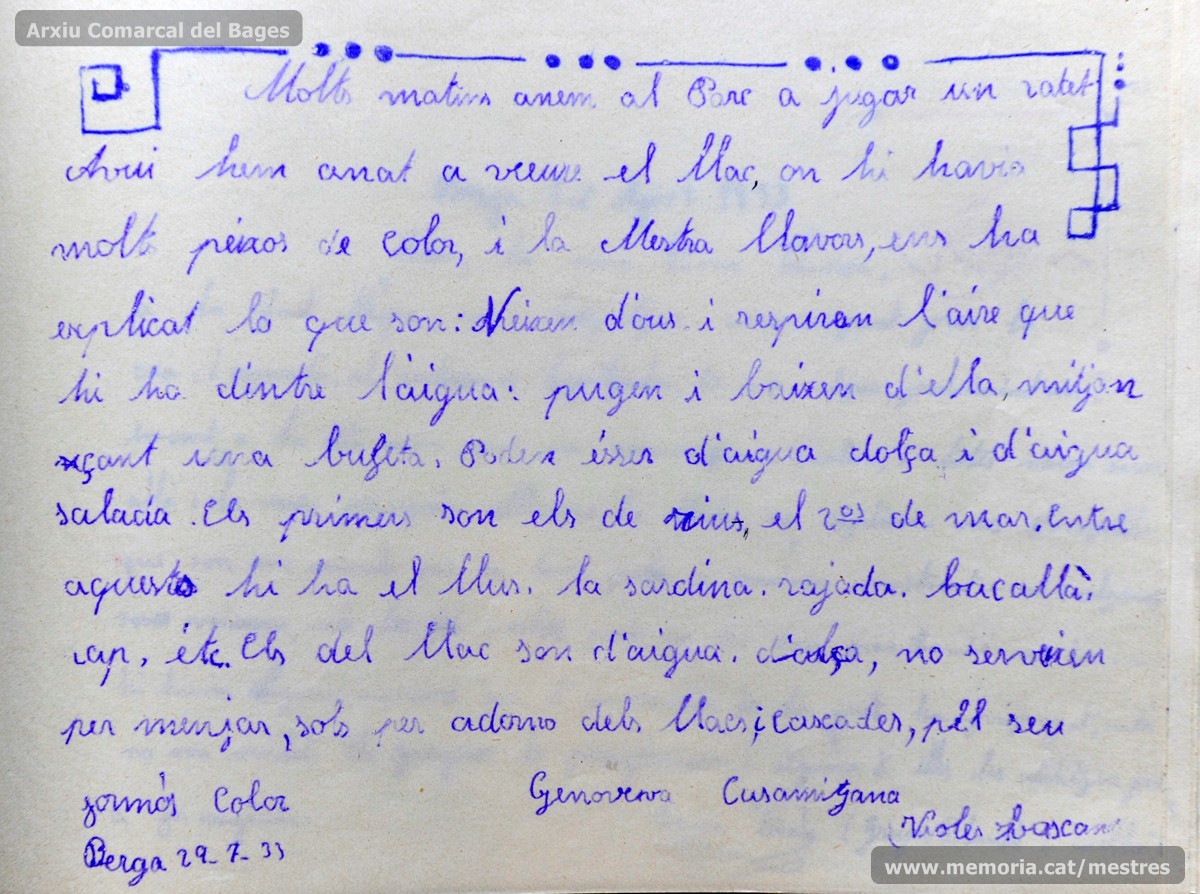 Arxiu Comarcal del Bages
Molts matins anem al Parc a jugar un ratet
Avui hem anat a vieure el llac, on hi havia
molts peixos de Color, i la Mestra llavors, ens ha
explicat lo que son: Neixen d'ous i respiren l'aire que
hi ha dintre l'aigua: pugen i baixen d'ella, mitjan
çant una bufeta. Poden ésser d'aigua dolça i d'aigua
salada. Els primers son els de rius, el 2os de mar. Entre
aquests hi ha el llus. la sardina. rajada. bacallà.
rap, étc. Els del llac son d'aigua. dolça, no serveixen
per menjar, sols per adorno dels llacs, i Cascades, pel seu
formós Color
Genoveva Cusamitjana
Berga 29-7-33
www.memoria.cat/mestres